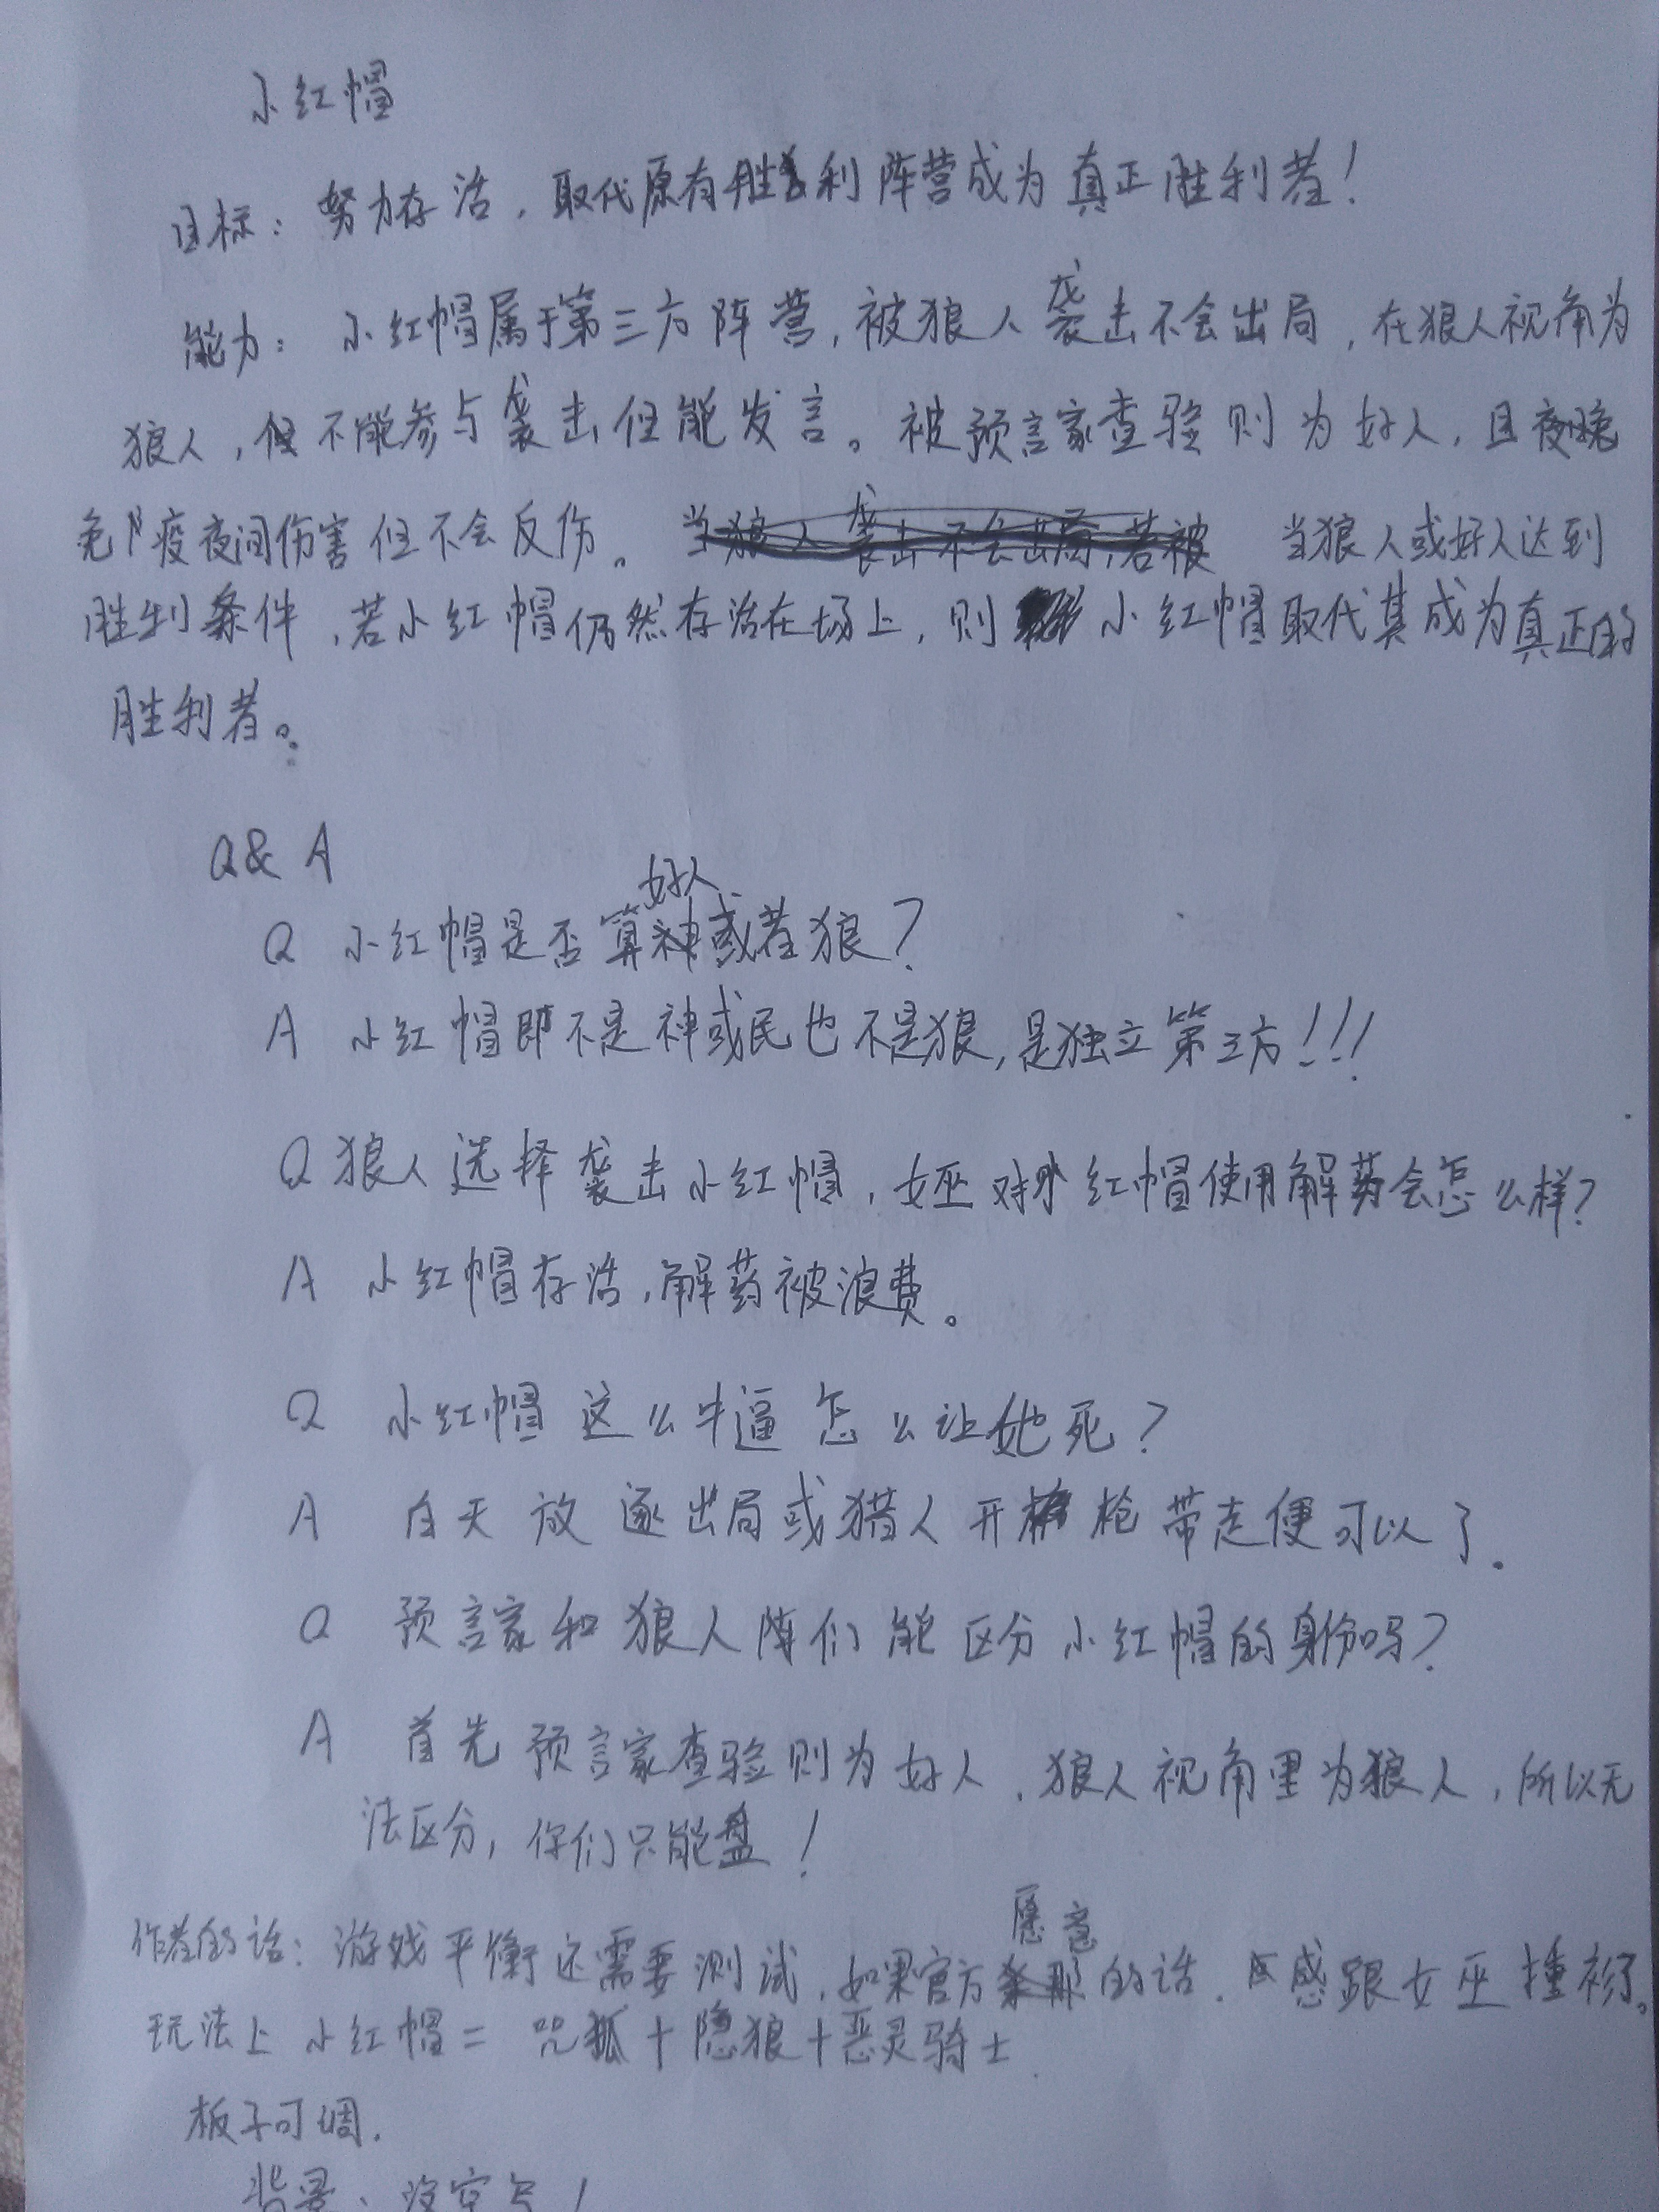 小红帽
目标：努力存活，取代原有胜利阵营成为真正胜利者！
能力：小红帽属于第三方阵营，被狼人袭击不会出局，在狼人视角为
狼人，但不能参与袭击但能发言。被预言家查验则为好人，且夜晚
免疫夜间伤害但不会反伤。当狼人袭击不会出局，若被 当狼人或好人达到
胜利条件，若小红帽仍然存活在场上，则 小红帽取代其成为真正的
胜利者。
Q& A
好人
Q 小红帽是否算神或者狼？
A 小红帽即不是神或民也不是狼，是独立第三方！！！
Q 狼人选择袭击小红帽，女巫对小红帽使用解药会怎么样？
A 小红帽存活，解药被浪费。
Q 小红帽这么牛逼怎么让她死？
A 白天放逐出局或猎人开枪带走便可以了.
Q 预言家和狼人阵们能区分小红帽的身份吗？
A 首先预言家查验则为好人，狼人视角里为狼人，所以无
法区分，你们只能盘！
愿意
作者的话：游戏平衡还需要测试，如果官方 的话. 感跟女巫撞衫了。
玩法上小红帽＝咒狐＋隐狼＋恶灵骑士.
板子可调.
背景：没空写！